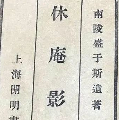 南陵盛于斯遺著
休庵影
上海開明書